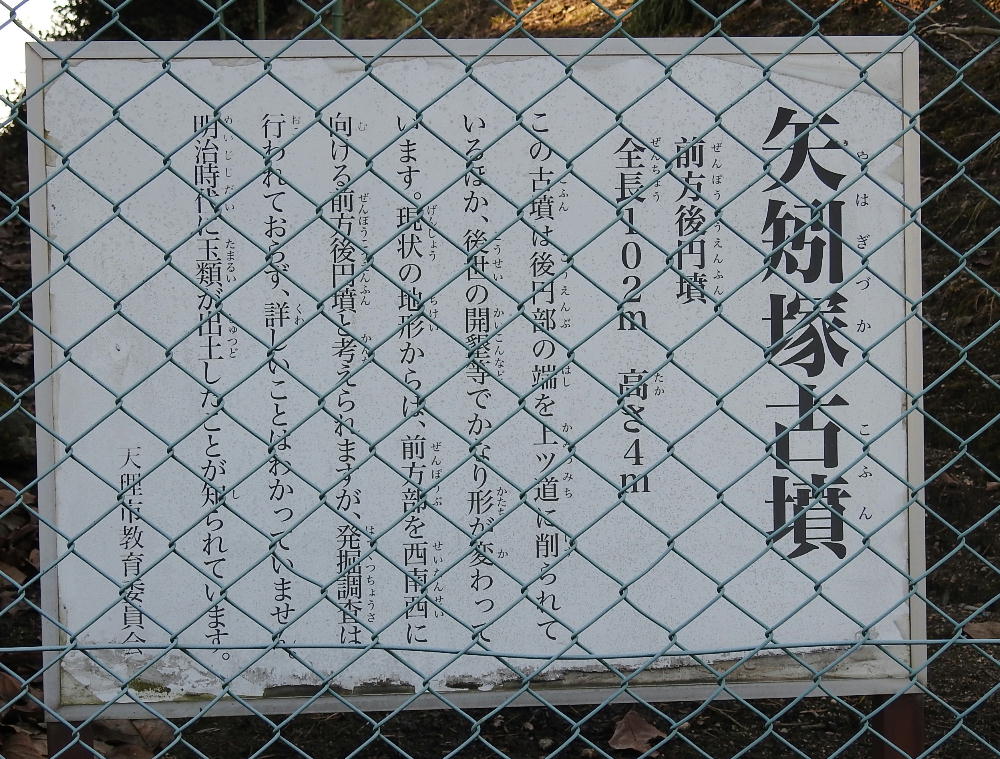 矢矧塚古墳
前方後円墳
全長102m 高さ4m
この古墳は後円部の端を上ツ道に削られて
いるほか、後世の開墾等でかなり形が変わって
います。現状の地形からは、前方部を西南西に
向ける前方後円墳と考えられますが、発掘調査は
行われておらず、詳しいことはわかっていません。
明治時代に玉類が出土したことが知られています。
天理市教育委員会